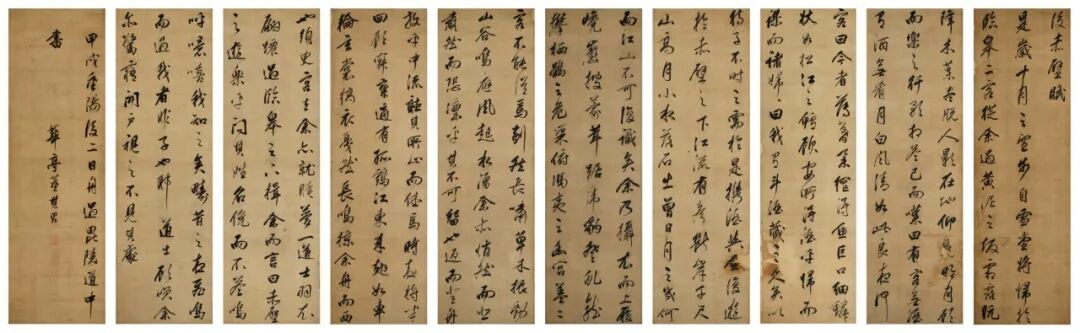 後赤壁賦
是歲十月之望步自雪堂將歸於
臨皋二客從余過黃泥之坂霜露既
降木葉盡脫人影在地仰見明月顧
而樂之行歌相答已而嘆曰有客無酒
有酒無肴月白風清如此良夜何
客曰今者薄暮舉網得魚巨口細鱗
狀如松江之鱸顧安所得酒乎歸而
謀諸婦婦曰我有斗酒藏之久矣以
待子不時之需於是攜酒與魚復遊
於赤壁之下江流有聲斷岸千尺
山高月小水落石出曾日月之幾何
而江山不可復識矣余乃攝衣而上履
巉巖披蒙茸踞虎豹登虬龍
攀栖鶻之危巢俯馮夷之幽宮蓋二
客不能從焉劃然長嘯草木振動
山谷鳴應風起水湧余亦悄然而悲
肅然而恐凜乎其不可留也返而登舟
放乎中流聽其所止而休焉時夜將半
四顧寂寥適有孤鶴江東來翅如車
輪玄裳縞衣戛然長鳴掠余舟而西
也須臾客去余亦就睡夢一道士羽衣
蹁躚過臨皋之下揖余而言曰赤壁
之遊樂乎問其姓名俛而不答嗚
呼噫嘻我知之矣疇昔之夜飛鳴
而過我者非子也耶道士顧笑余
亦驚寤開戶視之不見其處
甲戌重陽後二日舟過毘陵道中
書
華亭董其昌